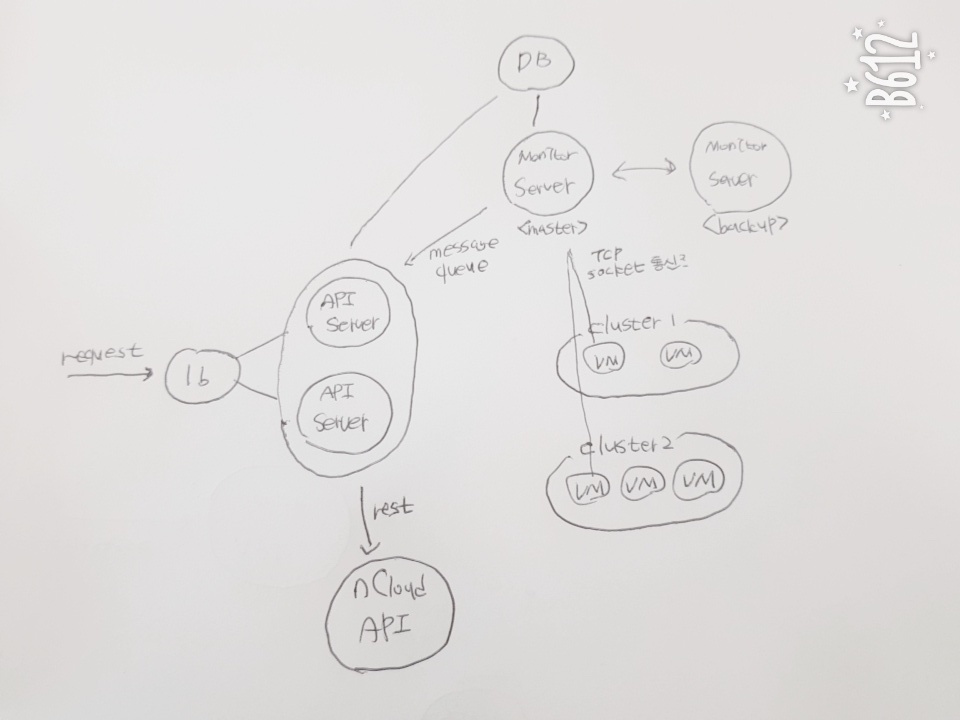 B612
DB
Monitor
Server
<master>
Monitor
Server
<backup>
message
queue
TCP
socket 통신?
API
Server
API
Server
request
lb
cluster 1
VM
VM
cluster2
VM
VM
VM
rest
nCloud
API